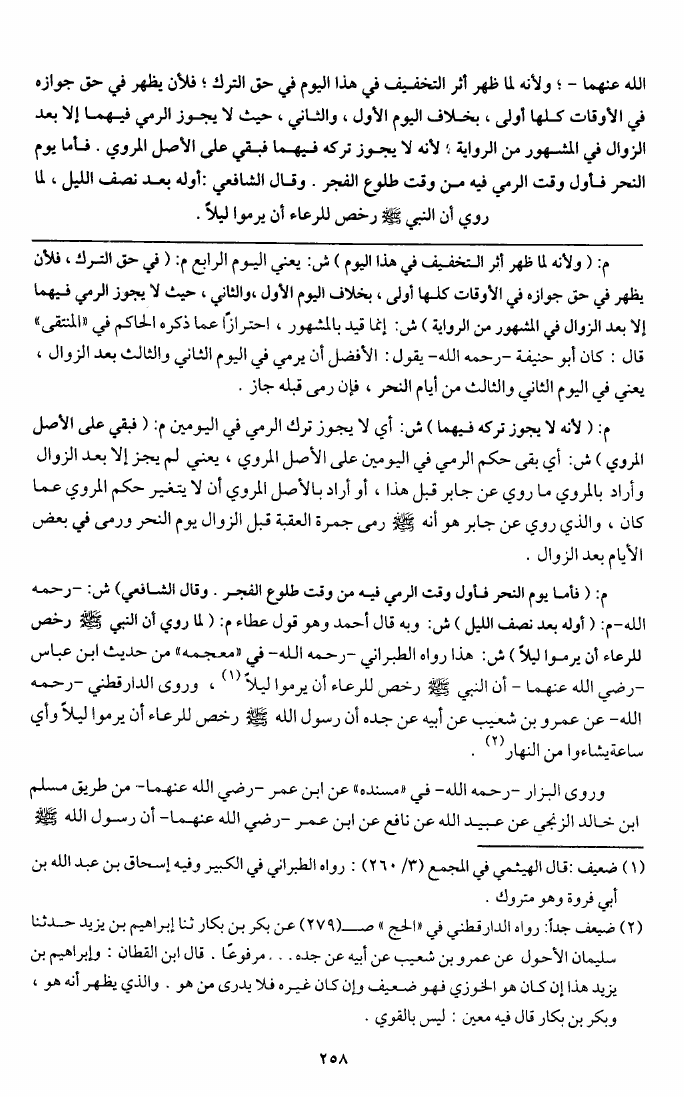 الله عنهما - ؛ ولأنه لما ظهر أثر التخفيف في هذا اليوم في حق الترك ؛ فلأن يظهر في حق جوازه
في الأوقات كلها أولى ، بخلاف اليوم الأول ، والثاني ، حيث لا يجوز الرمي فيهما إلا بعد
الزوال في المشهور من الرواية ؛ لأنه لا يجوز تركه فيهما فبقي على الأصل المروي . فأما يوم
النحر فأول وقت الرمي فيه من وقت طلوع الفجر . وقال الشافعي :أوله بعد نصف الليل ، لما
روي أن النبي ﷺ رخص للرعاء أن يرموا ليلاً .
م: ( ولأنه لما ظهر أثر التخفيف في هذا اليوم ) ش: يعني اليوم الرابع م: ( في حق الترك ، فلأن
يظهر في حق جوازه في الأوقات كلها أولى ، بخلاف اليوم الأول ،والثاني ، حيث لا يجوز الرمي فيهما
إلا بعد الزوال في المشهور من الرواية ) ش: إنما قيد بالمشهور ، احترازًا عما ذكره الحاكم في «المنتقى»
قال : كان أبو حنيفة -رحمه الله- يقول : الأفضل أن يرمي في اليوم الثاني والثالث بعد الزوال ،
يعني في اليوم الثاني والثالث من أيام النحر ، فإن رمى قبله جاز .
م: ( لأنه لا يجوز تركه فيهما ) ش: أي لا يجوز ترك الرمي في اليومين م: ( فبقي على الأصل
المروي ) ش: أي بقى حكم الرمي في اليومين على الأصل المروي ، يعني لم يجز إلا بعد الزوال
وأراد بالمروي ما روي عن جابر قبل هذا ، أو أراد بالأصل المروي أن لا يتغير حكم المروي عما
كان ، والذي روي عن جابر هو أنه ﷺ رمى جمرة العقبة قبل الزوال يوم النحر ورمى في بعض
الأيام بعد الزوال .
م: ( فأما يوم النحر فأول وقت الرمي فيه من وقت طلوع الفجر . وقال الشافعي) ش: -رحمه
الله-م: ( أوله بعد نصف الليل ) ش: وبه قال أحمد وهو قول عطاء م: ( لما روي أن النبي ﷺ رخص
للرعاء أن يرموا ليلاً ) ش: هذا رواه الطبراني -رحمه الله- في «معجمه» من حديث ابن عباس
-رضي الله عنهما - أن النبي ﷺ رخص للرعاء أن يرموا ليلاً (١) ، وروى الدارقطني -رحمه
الله- عن عمرو بن شعيب عن أبيه عن جده أن رسول الله ﷺ رخص للرعاء أن يرموا ليلاً وأي
ساعةيشاءوا من النهار(٢) .
وروى البزار -رحمه الله- في «مسنده» عن ابن عمر -رضي الله عنهما- من طريق مسلم
ابن خالد الزنجي عن عبيد الله عن نافع عن ابن عمر -رضي الله عنهما- أن رسول الله ﷺ
(١) ضعيف :قال الهيثمي في المجمع (٣/ ٢٦٠) : رواه الطبراني في الكبير وفيه إسحاق بن عبد الله بن
أبي فروة وهو متروك .
(٢) ضعيف جداً: رواه الدارقطني في «الحج » صـ(٢٧٩) عن بكر بن بكار ثنا إبراهيم بن يزيد حدثنا
سليمان الأحول عن عمرو بن شعيب عن أبيه عن جده... مرفوعًا . قال ابن القطان : وإبراهيم بن
يزيد هذا إن كان هو الخوزي فهو ضعيف وإن كان غيره فلا يدرى من هو . والذي يظهر أنه هو ،
وبكر بن بكار قال فيه معين : ليس بالقوي .
٢٥٨